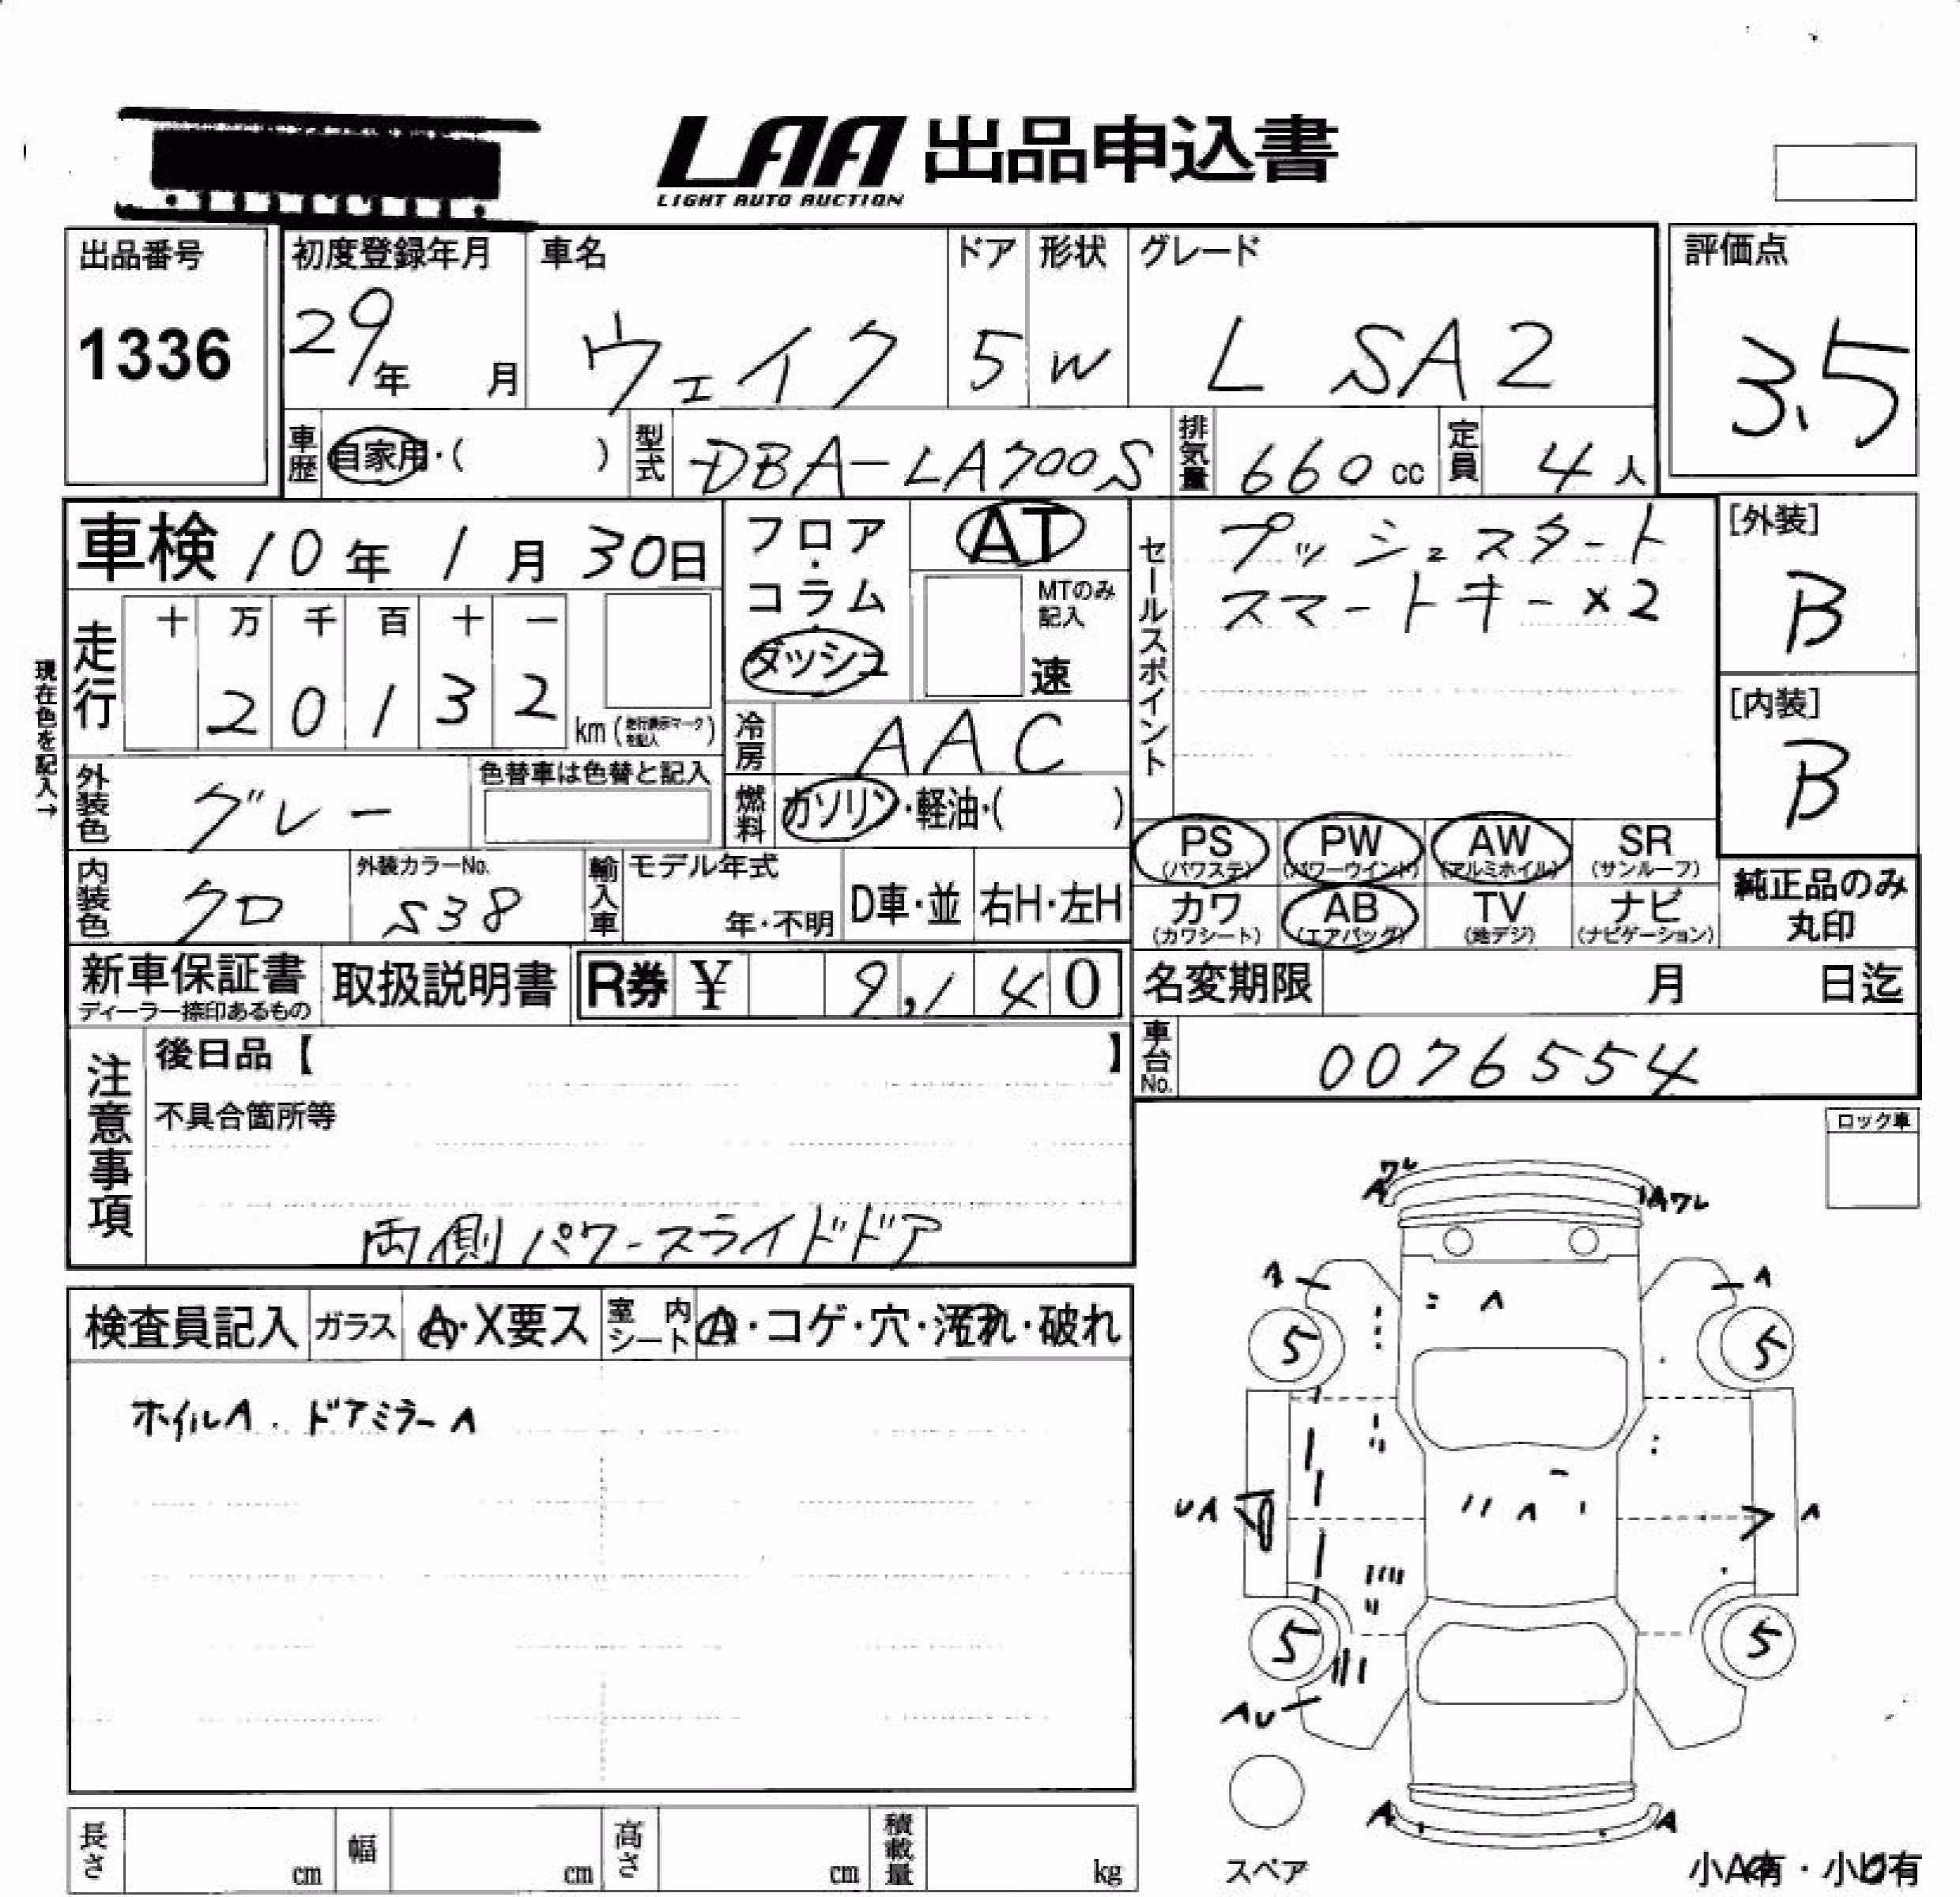 LAA 出品申込書
LIGHT AUTO AUCTION
出品番号 初度登録年月 車名 ドア 形状 グレード 評価点
1336 29年 月 ウェイク 5 W L SA2 3.5
車歴 自家用・( ) 型式 DBA-LA700S 排気量 660cc 定員 4人
車検 10年 1月 30日 フロア・コラム ダッシュ AT
MTのみ記入 速
セールスポイント プッシュスタート
スマートキー×2
[外装] B
[内装] B
現在色を記入→
走行 十 万 千 百 十 一
2 0 1 3 2 km(走行表示マークを記入)
冷房 AAC
外装色 グレー 色替車は色替と記入
燃料 ガソリン・軽油・( )
PS (パワステ) PW (パワーウインド) AW (アルミホイル) SR (サンルーフ)
内装色 クロ 外装カラーNo. S38 輸入車 モデル年式 年・不明 D車・並 右H・左H
カワ (カワシート) AB (エアバッグ) TV (地デジ) ナビ (ナビゲーション)
純正品のみ
丸印
新車保証書 ディーラー捺印あるもの 取扱説明書 R券 ¥ 9,140 名変期限 月 日迄
車台No. 0076554
注意事項 後日品【 】
不具合箇所等
両側パワースライドドア
ロック車
検査員記入 ガラス A・X要ス 室内シート A・コゲ・穴・汚れ・破れ
ホイルA. ドアミラーA
ワレ
A Aワレ
A A
5 5
UA A A
5 5
AU
A A
スペア
小A有・小U有
長さ cm 幅 cm 高さ cm 積載量 kg